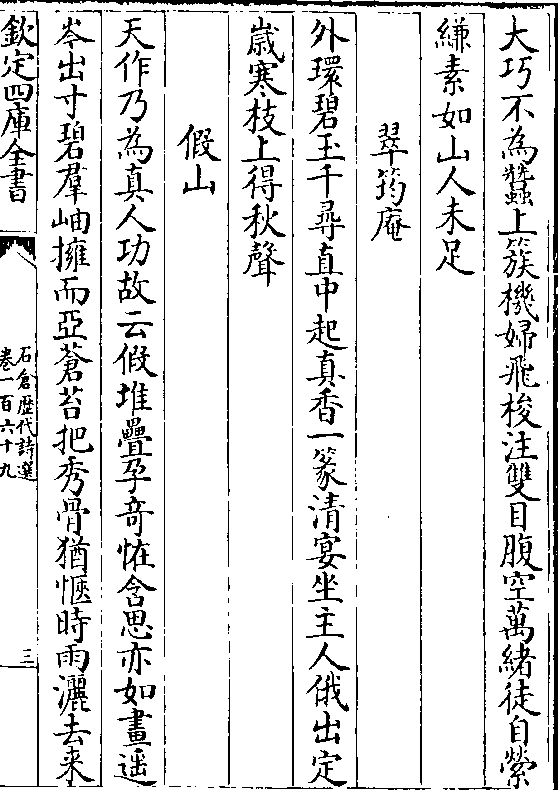 大巧不為蠶上簇機婦飛梭注雙目腹空萬緒徒自縈
縑素如山人未足
翠筠庵
外環碧玉千尋直中起真香一篆清宴坐主人俄出定
歲寒枝上得秋聲
假山
天作乃為真人功故云假堆疊孕奇怪含思亦如畫遥
岑出寸碧羣岫擁而亞蒼苔把秀骨猶愜時雨灑去来
欽定四庫全書
石倉歴代詩選
卷一百六十九
三